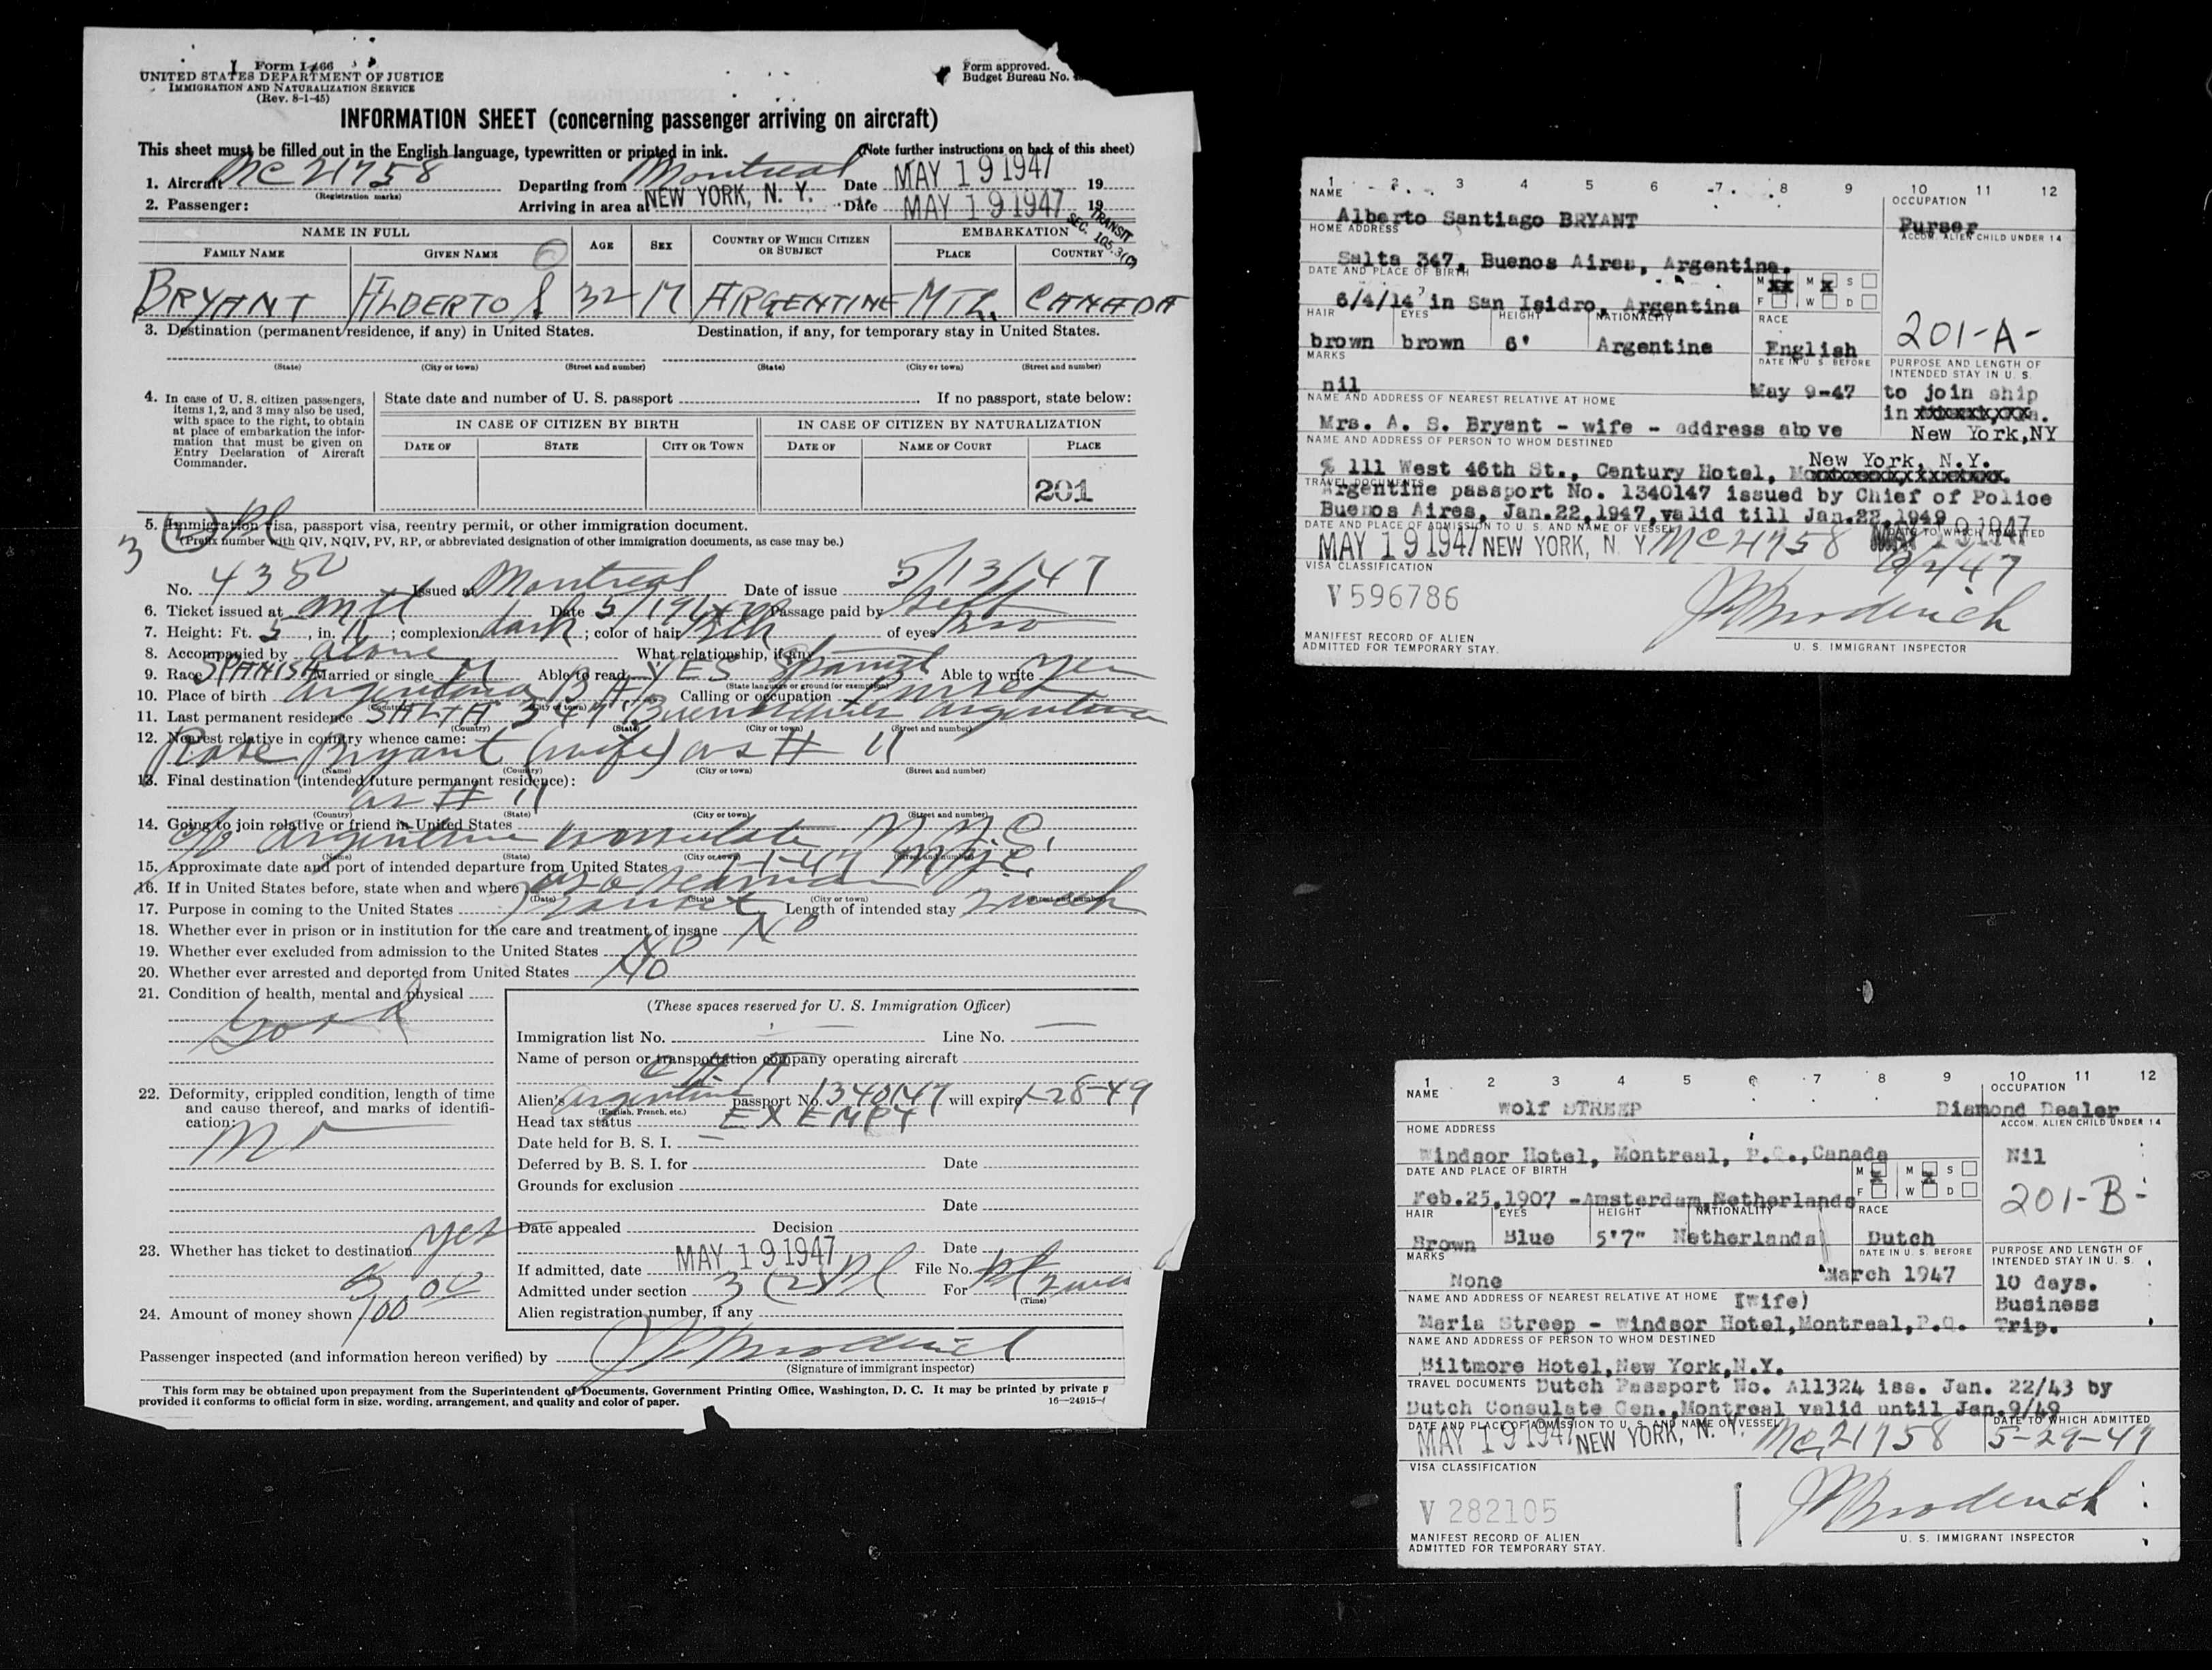 Form I-466
UNITED STATES DEPARTMENT OF JUSTICE
IMMIGRATION AND NATURALIZATION SERVICE
(Rev. 8-1-45)
Form approved.
Budget Bureau No.
INFORMATION SHEET (concerning passenger arriving on aircraft)
This sheet must be filled out in the English language, typewritten or printed in ink. (Note further instructions on back of this sheet)
1. Aircraft NC 21758 Departing from Montreal Date MAY 19 1947 19
(Registration marks)
2. Passenger: Arriving in area at NEW YORK, N. Y. Date MAY 19 1947 19
TRANSIT
SEC. 105.3(c)
NAME IN FULL AGE SEX COUNTRY OF WHICH CITIZEN OR SUBJECT EMBARKATION
FAMILY NAME GIVEN NAME PLACE COUNTRY
BRYANT ALBERTO S. 32 M ARGENTINE MTL. CANADA
3. Destination (permanent residence, if any) in United States. Destination, if any, for temporary stay in United States.
(State) (City or town) (Street and number) (State) (City or town) (Street and number)
4. In case of U. S. citizen passengers, items 1, 2, and 3 may also be used, with space to the right, to obtain at place of embarkation the information that must be given on Entry Declaration of Aircraft Commander.
State date and number of U. S. passport If no passport, state below:
IN CASE OF CITIZEN BY BIRTH IN CASE OF CITIZEN BY NATURALIZATION
DATE OF STATE CITY OR TOWN DATE OF NAME OF COURT PLACE
201
5. Immigration visa, passport visa, reentry permit, or other immigration document.
3 (2) Pl
(Prefix number with QIV, NQIV, PV, RP, or abbreviated designation of other immigration documents, as case may be.)
No. 4350 Issued at Montreal Date of issue 5/13/47
6. Ticket issued at Mtl Date 5/19/47 Passage paid by Self
7. Height: Ft. 5, in. 11; complexion dark; color of hair Blk of eyes Bro
8. Accompanied by alone What relationship, if any
9. Race SPANISH Married or single M Able to read YES Spanish Able to write yes
(State language or ground for exemption)
10. Place of birth Argentina B A Calling or occupation Purser
(Country) (City or town)
11. Last permanent residence SALTA 347 Buenos Aires Argentina
(Country) (State) (City or town) (Street and number)
12. Nearest relative in country whence came:
Rose Bryant (wife) as # 11
(Name) (Country) (City or town) (Street and number)
13. Final destination (intended future permanent residence):
as # 11
(Country) (State) (City or town) (Street and number)
14. Going to join relative or friend in United States
c/o Argentine Consulate N.Y.C.
(Name) (State) (City or town) (Street and number)
15. Approximate date and port of intended departure from United States 1-47 NYC.
16. If in United States before, state when and where as a seaman
(Date) (State) (City or town) (Street and number)
17. Purpose in coming to the United States Transit Length of intended stay 2 week
18. Whether ever in prison or in institution for the care and treatment of insane NO
19. Whether ever excluded from admission to the United States NO
20. Whether ever arrested and deported from United States NO
21. Condition of health, mental and physical
Good
22. Deformity, crippled condition, length of time and cause thereof, and marks of identification:
no
23. Whether has ticket to destination yes
24. Amount of money shown 100
(These spaces reserved for U. S. Immigration Officer)
Immigration list No. Line No.
Name of person or transportation company operating aircraft
Alien's Argentine passport No. 1340147 will expire 1-28-49
(English, French, etc.)
Head tax status EXEMPT
Date held for B. S. I.
Deferred by B. S. I. for Date
Grounds for exclusion
Date
Date appealed Decision
Date
If admitted, date MAY 19 1947 File No.
Admitted under section 3 (2) Pl For
(Time)
Alien registration number, if any
Passenger inspected (and information hereon verified) by J Broderick
(Signature of immigrant inspector)
This form may be obtained upon prepayment from the Superintendent of Documents, Government Printing Office, Washington, D. C. It may be printed by private p
provided it conforms to official form in size, wording, arrangement, and quality and color of paper. 16—24915-
1 2 3 4 5 6 7 8 9 10 11 12
NAME OCCUPATION
Alberto Santiago BRYANT Purser
HOME ADDRESS ACCOM. ALIEN CHILD UNDER 14
Salta 347, Buenos Aires, Argentina.
DATE AND PLACE OF BIRTH M xx M x S
6/4/14 in San Isidro, Argentina F W D
HAIR EYES HEIGHT NATIONALITY RACE
brown brown 6' Argentine English
201-A-
MARKS DATE IN U. S. BEFORE PURPOSE AND LENGTH OF INTENDED STAY IN U. S.
nil May 9-47 to join ship
NAME AND ADDRESS OF NEAREST RELATIVE AT HOME in
Mrs. A. S. Bryant - wife - address above New York,NY
NAME AND ADDRESS OF PERSON TO WHOM DESTINED
New York, N.Y.
% 111 West 46th St., Century Hotel,
TRAVEL DOCUMENTS
Argentine passport No. 1340147 issued by Chief of Police
Buenos Aires, Jan.22,1947,valid till Jan.22,1949
DATE AND PLACE OF ADMISSION TO U. S. AND NAME OF VESSEL DATE TO WHICH ADMITTED
MAY 19 1947 NEW YORK, N. Y. NC 21758 MAY 19 1947
6/2/47
VISA CLASSIFICATION
V 596786
J Broderick
MANIFEST RECORD OF ALIEN
ADMITTED FOR TEMPORARY STAY.
U. S. IMMIGRANT INSPECTOR
1 2 3 4 5 6 7 8 9 10 11 12
NAME OCCUPATION
Wolf STREEP Diamond Dealer
HOME ADDRESS ACCOM. ALIEN CHILD UNDER 14
Windsor Hotel, Montreal, P.Q.,Canada Nil
DATE AND PLACE OF BIRTH M x M x S
Feb.25,1907 -Amsterdam,Netherlands F W D
201-B-
HAIR EYES HEIGHT NATIONALITY RACE
Brown Blue 5'7" Netherlands Dutch
MARKS DATE IN U. S. BEFORE PURPOSE AND LENGTH OF INTENDED STAY IN U. S.
None March 1947 10 days.
NAME AND ADDRESS OF NEAREST RELATIVE AT HOME (wife) Business
Maria Streep - Windsor Hotel,Montreal,P.Q. Trip.
NAME AND ADDRESS OF PERSON TO WHOM DESTINED
Biltmore Hotel,New York,N.Y.
TRAVEL DOCUMENTS Dutch Passport No. A11324 iss. Jan. 22/43 by
Dutch Consulate Gen.,Montreal valid until Jan.9/49
DATE AND PLACE OF ADMISSION TO U. S. AND NAME OF VESSEL DATE TO WHICH ADMITTED
MAY 19 1947 NEW YORK, N. Y. NC 21758 5-29-47
VISA CLASSIFICATION
V 282105
J Broderick
MANIFEST RECORD OF ALIEN
ADMITTED FOR TEMPORARY STAY.
U. S. IMMIGRANT INSPECTOR